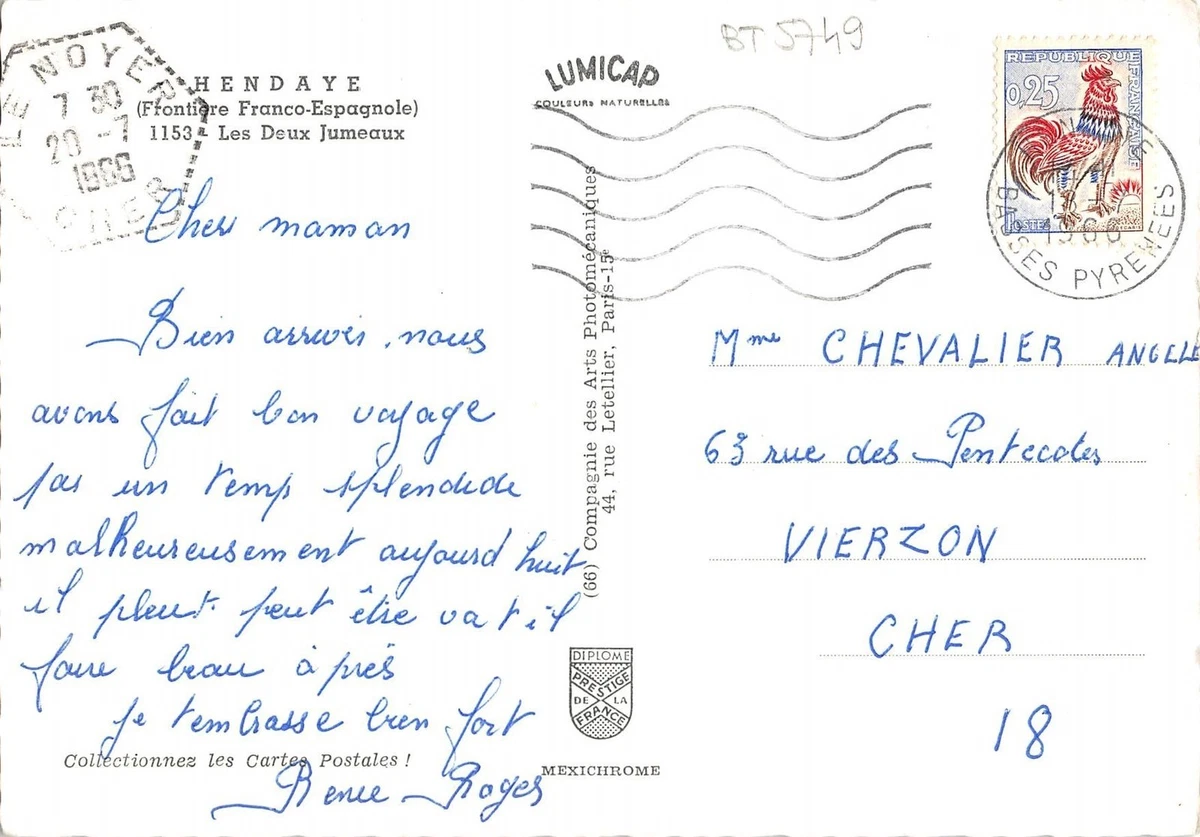 BT 5749
LE NOYER
7 30
20 -7
1966
CHER
HENDAYE
(Frontière Franco-Espagnole)
1153 - Les Deux Jumeaux
LUMICAP
COULEURS NATURELLES
REPUBLIQUE FRANÇAISE
0,25
POSTES
1966
BASSES PYRENEES
Cher maman
Bien arrivés, nous
avons fait bon voyage
par un temps splendide
malheureusement aujourd huit
il pleut. peut être va t il
faire beau à près
je t'embrasse bien fort
Renee Roger
Collectionnez les Cartes Postales !
(66) Compagnie des Arts Photomécaniques
44, rue Letellier, Paris-15e
DIPLOME
PRESTIGE
DE LA
FRANCE
MEXICHROME
Mme CHEVALIER ANGELE
63 rue des Pentecotes
VIERZON
CHER
18